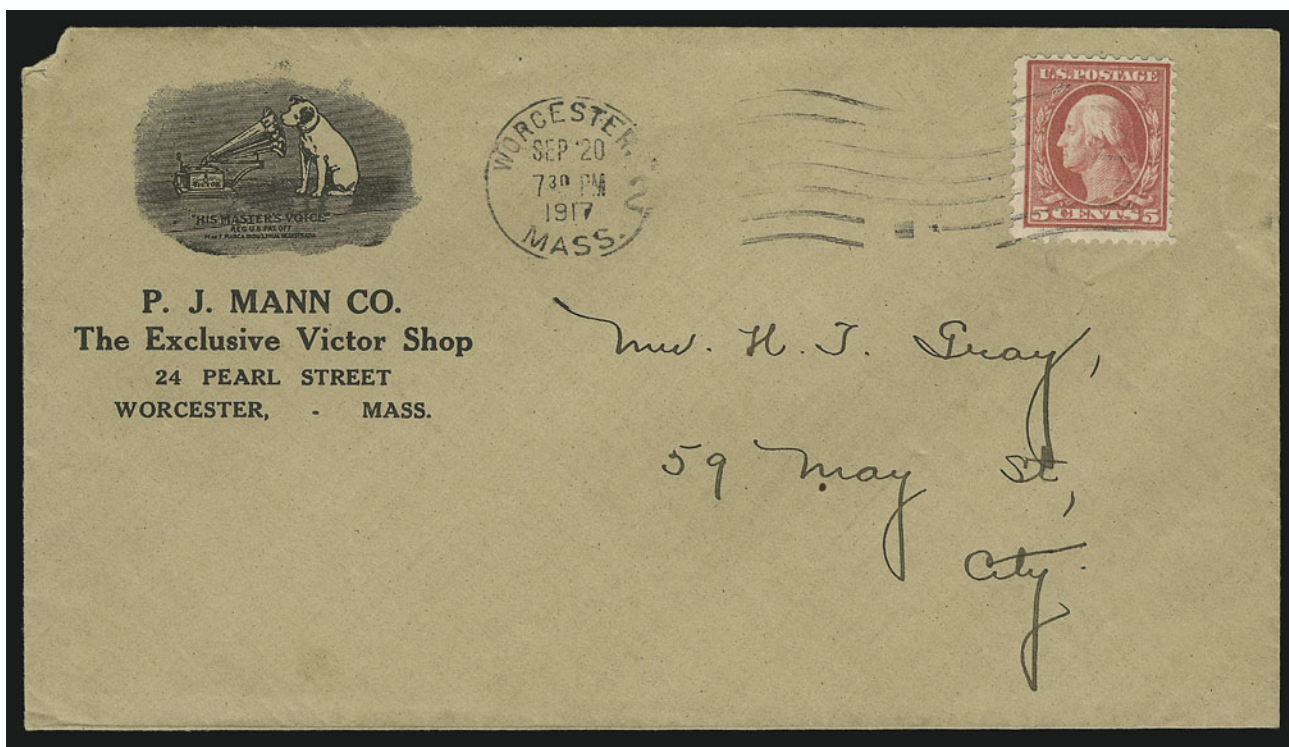 VICTOR
"HIS MASTER'S VOICE"
REG. U.S. PAT. OFF.
P. J. MANN CO.
The Exclusive Victor Shop
24 PEARL STREET
WORCESTER, - MASS.
WORCESTER,
SEP 20
7 30 PM
1917
MASS.
2
U.S. POSTAGE
5 CENTS 5
H. T. Gray,
59 May St,
City.